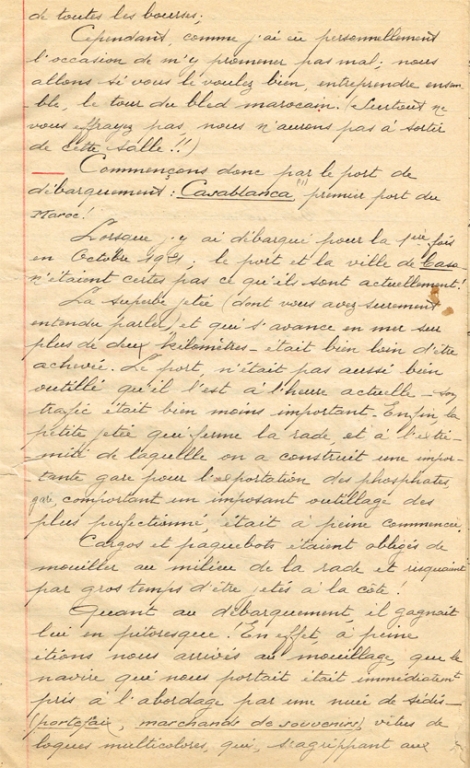 de toutes les bourses.
Cependant, comme j'ai eu personnellement
l'occasion de m'y promener pas mal; nous
allons si vous le voulez bien, entreprendre ensem-
ble, le tour du bled marocain. (Surtout ne
vous effrayez pas, nous n'aurons pas à sortir
de cette salle!!)
Commençons donc par le port de
débarquement: "Casablanca", premier port du
Maroc!
Lorsque j'y ai débarqué pour la 1ère fois
en Octobre; le port et la ville de Casa
n'étaient certes pas ce qu'ils sont actuellement!
La superbe jetée (dont vous avez surement
entendu parler) et qui s'avance en mer sur
plus de deux kilomètres - était bien loin d'être
achevée. Le port, n'était pas aussi bien
outillé qu'il l'est à l'heure actuelle - son
trafic était bien moins important. Enfin la
petite jetée qui ferme la rade, et à l'extré-
mité de laquelle on a construit une impor-
tante gare pour l'exportation des phosphates,
gare comportant un imposant outillage des
plus perfectionné, était à peine commencée.
Cargos et paquebots étaient obligés de
mouiller au milieu de la rade et risquaient
par gros temps d'être jetés à la côte.
Quant au débarquement, il gagnait
lui en pittoresque! En effet, à peine
étions nous arrivés au mouillage, que le
navire qui nous portait était immédiatement
pris à l'abordage par une nuée de sidis-
(portefaix, marchands de souvenirs) vêtus de
loques multicolores, qui, s'agrippant aux